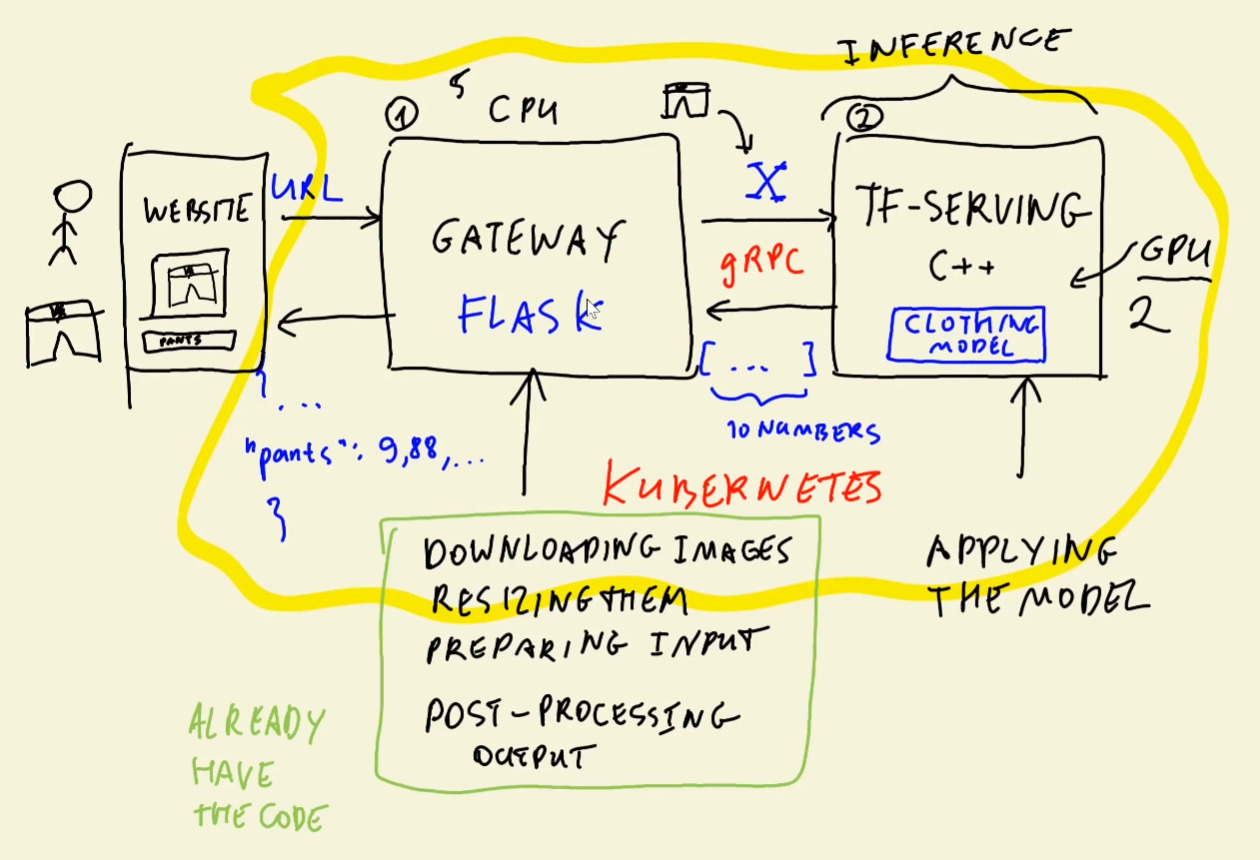 INFERENCE
① 5 CPU
②
WEBSITE
URL
GATEWAY
FLASK
X
gRPC
TF-SERVING
C++
GPU
2
CLOTHING
MODEL
PANTS
[ ... ]
10 NUMBERS
{
...
"pants": 9,88,...
}
KUBERNETES
DOWNLOADING IMAGES
RESIZING THEM
PREPARING INPUT
POST-PROCESSING
OUTPUT
APPLYING
THE MODEL
ALREADY
HAVE
THE CODE